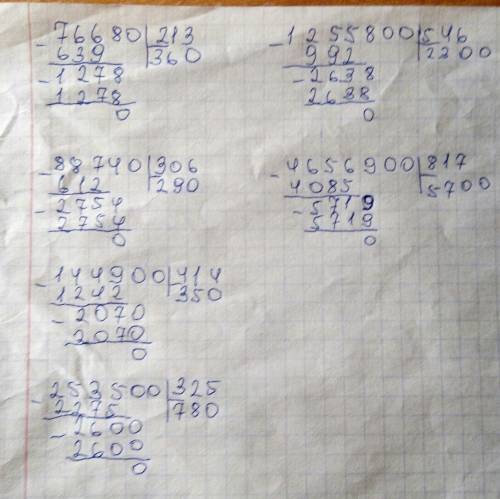 - 76680 | 213
639 | 360
- 1278
1278
0
- 88740 | 306
612 | 290
- 2754
2754
0
- 144900 | 414
1242 | 350
- 2070
2070
0
- 253500 | 325
2275 | 780
- 2600
2600
0
- 1255800 | 546
992 | 2300
- 2638
2638
0
- 4656900 | 817
4085 | 5700
- 5719
5719
0